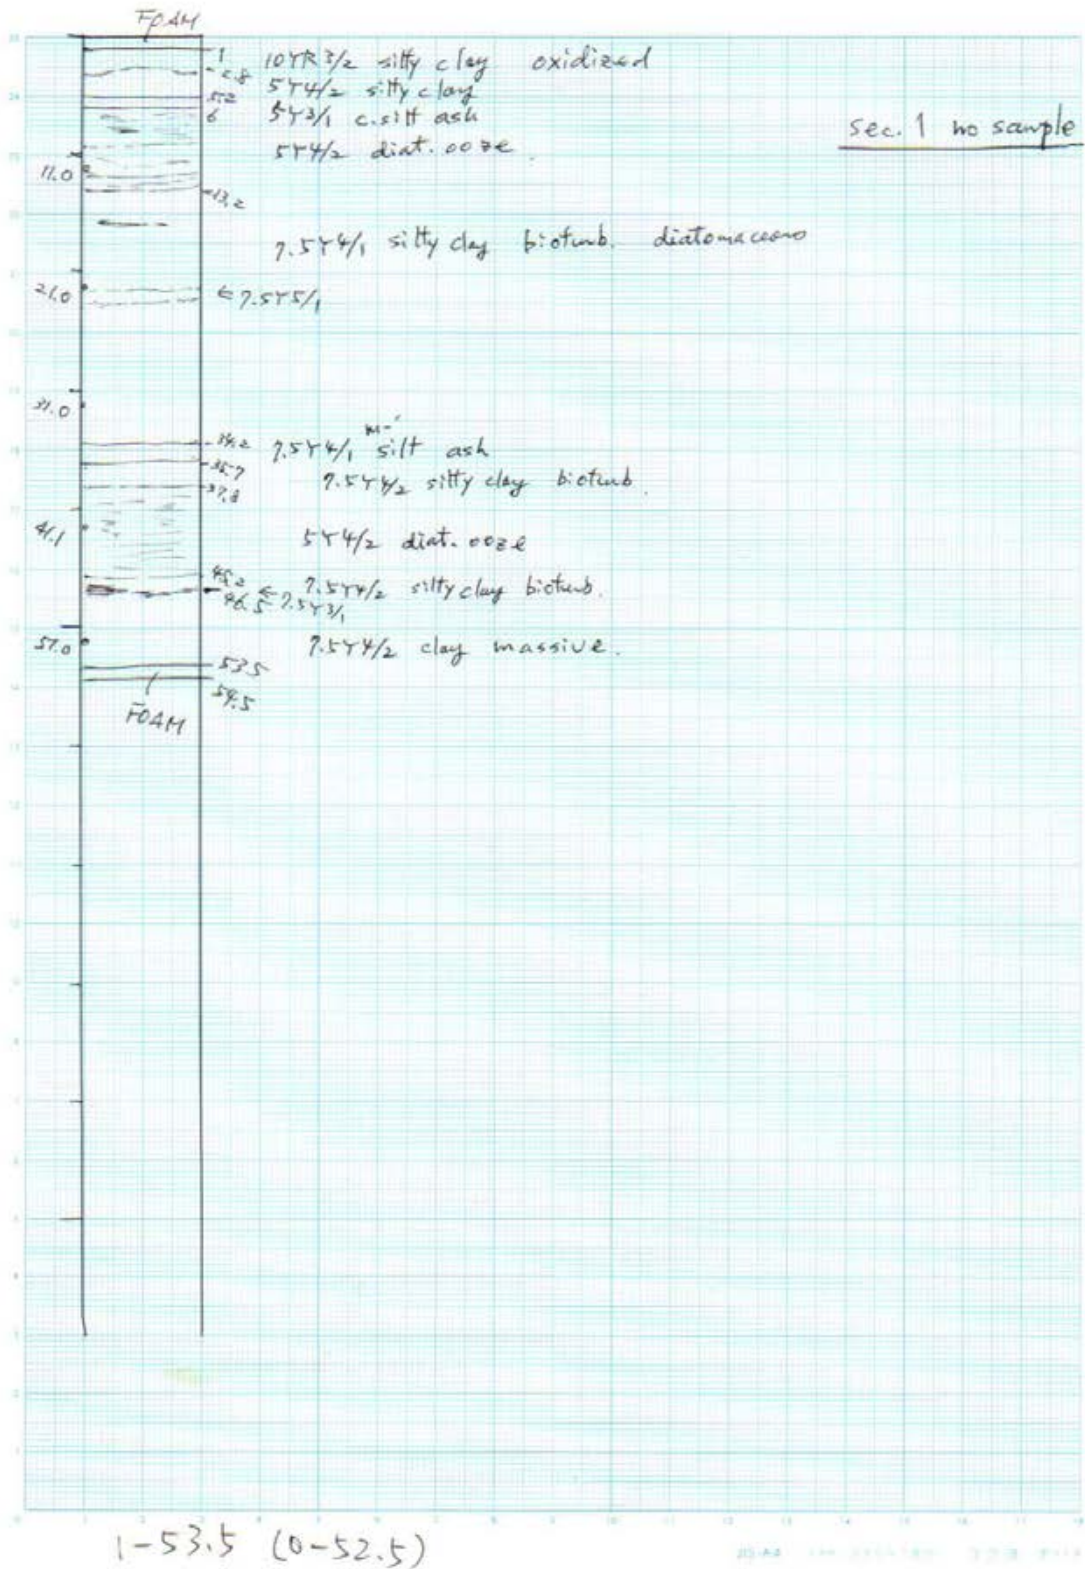 FOAM
1
10YR 3/2 silty clay oxidized
2.8
5Y4/2 silty clay
5.2
5Y3/1 c.silt ash
6
sec. 1 no sample
5Y4/2 diat. ooze
11.0
13.2
7.5Y4/1 silty clay bioturb. diatomaceous
21.0
← 7.5Y5/1
31.0
34.2 7.5Y4/1 m- silt ash
35.7
7.5Y4/2 silty clay bioturb.
37.8
41.1
5Y4/2 diat. ooze
45.2
7.5Y4/2 silty clay bioturb.
46.5 ← 7.5Y3/1
51.0
7.5Y4/2 clay massive.
53.5
54.5
FOAM
1-53.5 (0-52.5)